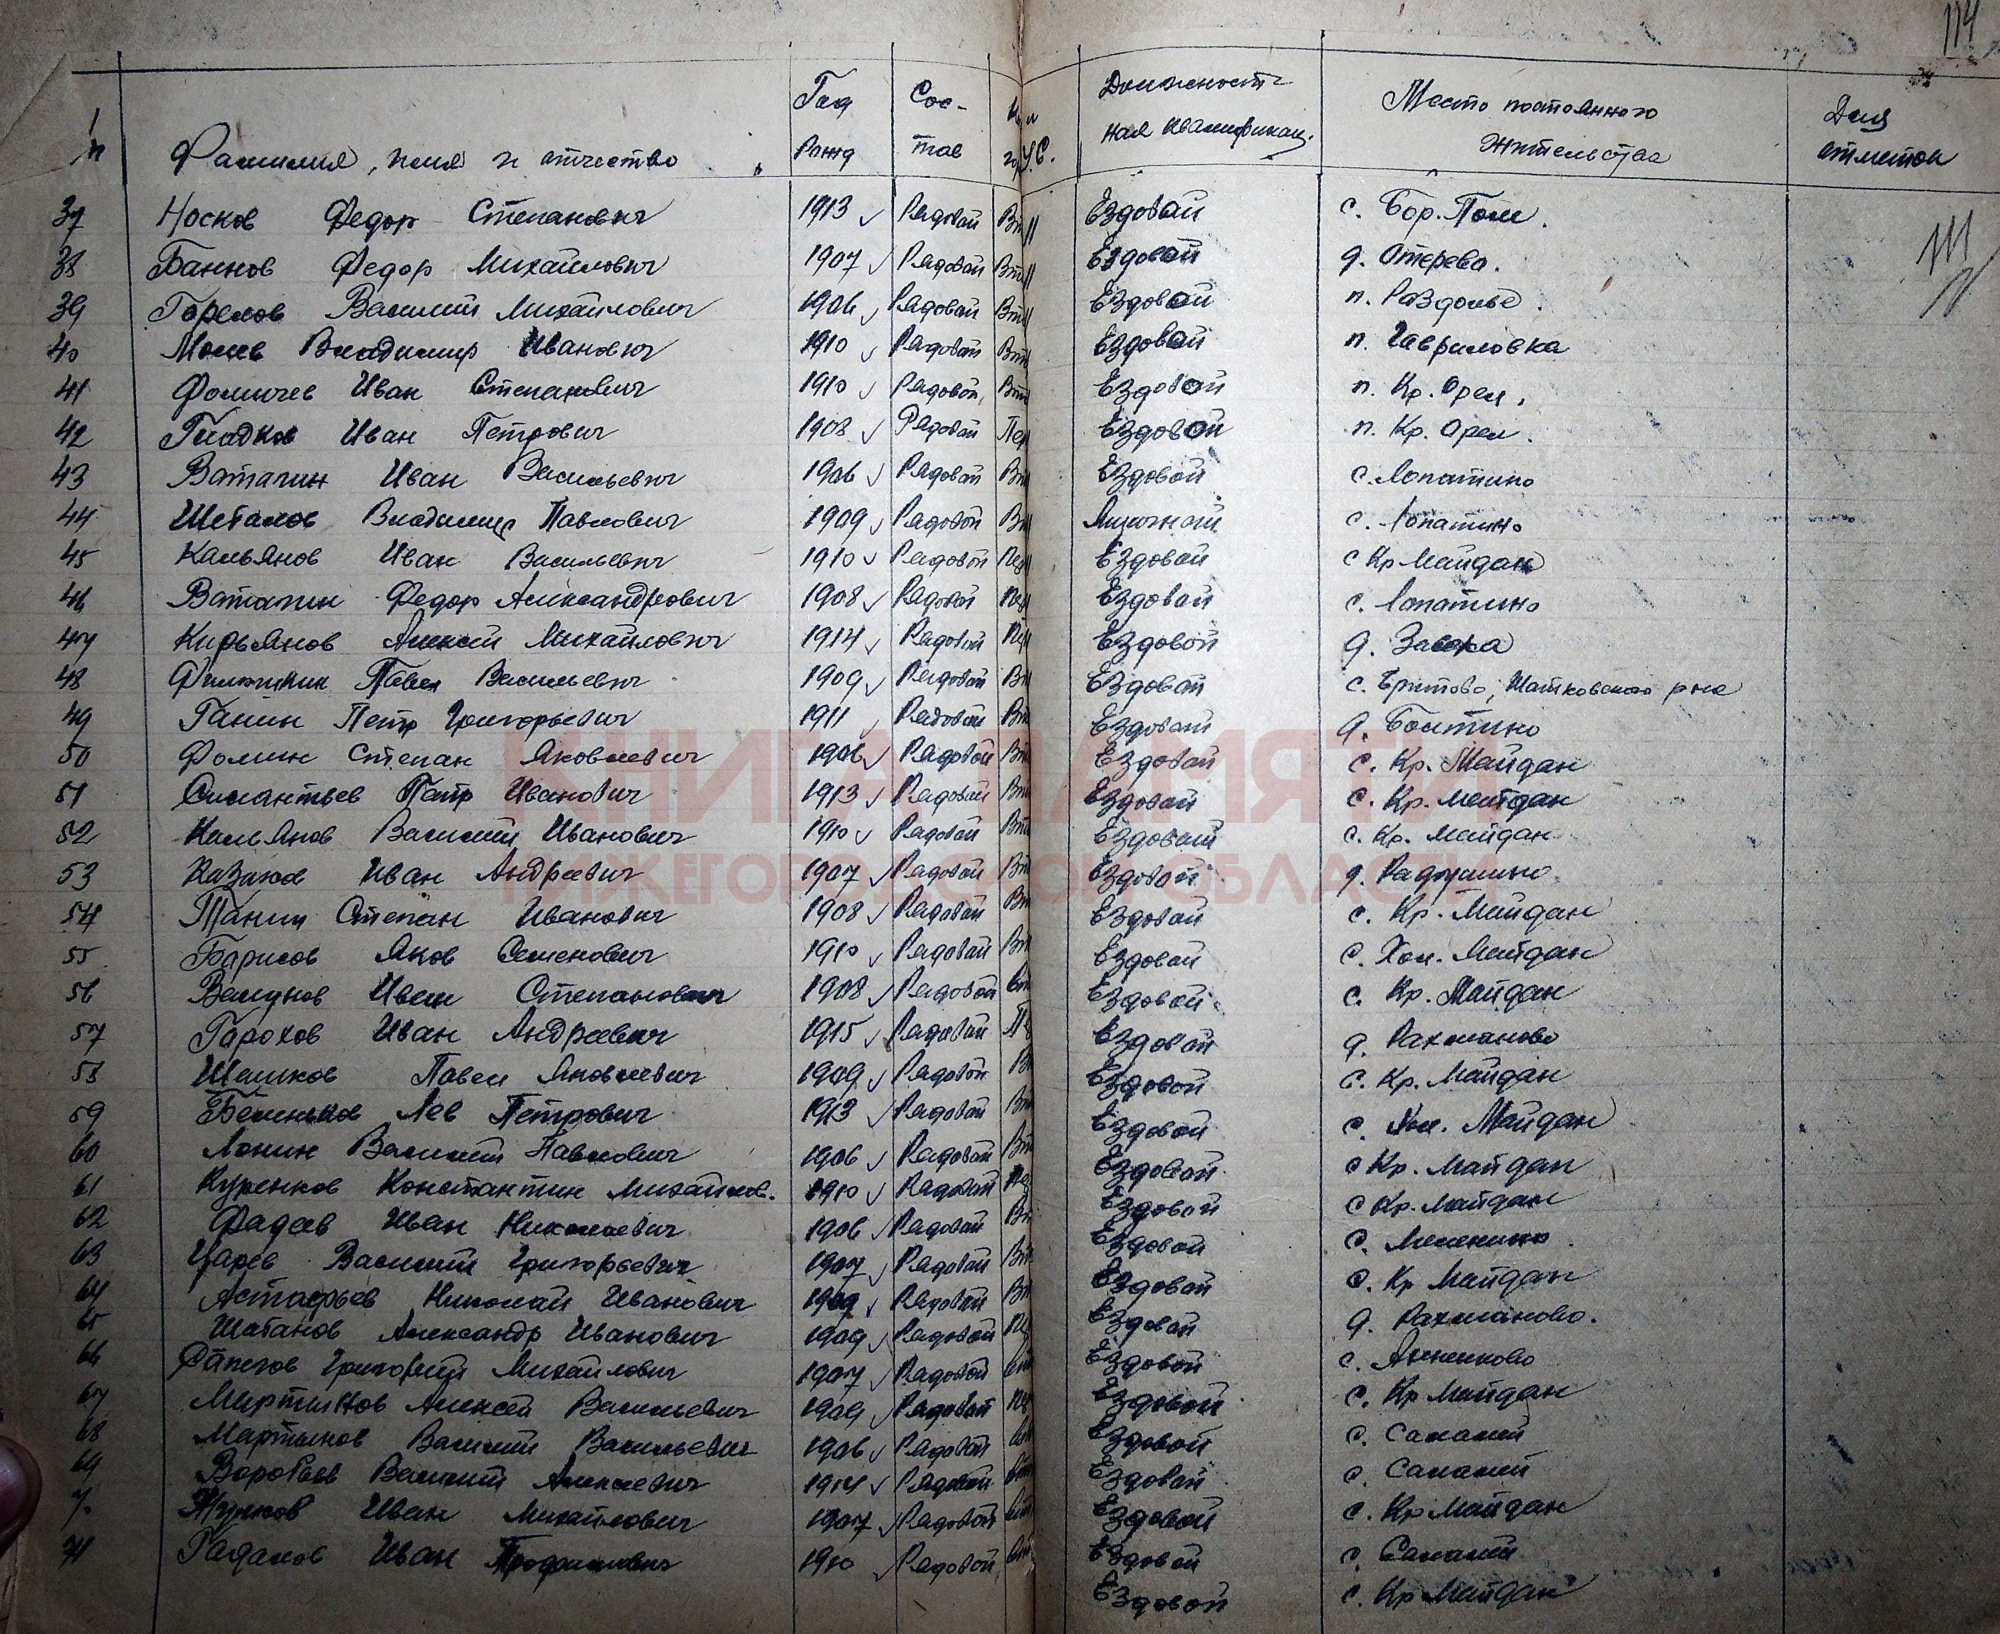 114
п Фамилия, имя и отчество Год рожд Сос-тав У.С. Должност-ная квалификац. Место постоянного жительства Для отметок
37 Носков Федор Степанович 1913 Рядовой Вт Ездовой с. Бор. Пол.
38 Баннов Федор Михайлович 1907 Рядовой Вт Ездовой д. Отерево.
39 Горелов Василий Михайлович 1906 Рядовой Вт Ездовой п. Раздолье.
40 Владимир Иванович 1910 Рядовой Вт Ездовой п. Гавриловка
41 Фомичев Иван Степанович 1910 Рядовой Вт Ездовой п. Кр. Орел.
42 Гладков Иван Петрович 1908 Рядовой Пер Ездовой п. Кр. Орел.
43 Ватагин Иван Васильевич 1906 Рядовой Вт Ездовой с. Лопатино
44 Владимир Павлович 1909 Рядовой Вт с. Лопатино
45 Кальянов Иван Васильевич 1910 Рядовой Пер Ездовой с Кр Майдан
46 Ватагин Федор Александрович 1908 Рядовой Пер Ездовой с. Лопатино
47 Кирьянов Алексей Михайлович 1914 Рядовой Пер Ездовой д.
48 Павел Васильевич 1909 Рядовой Вт Ездовой с. Шатковского р-на
49 Ганин Петр Григорьевич 1911 Рядовой Вт Ездовой д. Болтино
50 Фомин Степан Яковлевич 1906 Рядовой Вт Ездовой с. Кр. Майдан
51 Силантьев Петр Иванович 1913 Рядовой Вт Ездовой с. Кр. Майдан
52 Кальянов Василий Иванович 1910 Рядовой Вт Ездовой с. Кр. Майдан
53 Иван Андреевич 1907 Рядовой Вт Ездовой д. Радушино
54 Танин Степан Иванович 1908 Рядовой Вт Ездовой с. Кр. Майдан
55 Борисов Яков Семенович 1910 Рядовой Вт Ездовой с. Хол. Майдан
56 Валунов Иван Степанович 1908 Рядовой Ездовой с. Кр. Майдан
57 Горохов Иван Андреевич 1915 Рядовой Ездовой д. Рахманово
58 Шашков Павел Яковлевич 1909 Рядовой В Ездовой с. Кр. Майдан
59 Лев Петрович 1913 Рядовой Вт Ездовой с. Хол. Майдан
60 Лонин Василий Павлович 1906 Рядовой Вт Ездовой с Кр. Майдан
61 Куренков Константин Михайлов. 1910 Рядовой Пер Ездовой с Кр. Майдан
62 Фадеев Иван Николаевич 1906 Рядовой Вт Ездовой с.
63 Царев Василий Григорьевич 1907 Рядовой Вт Ездовой с. Кр Майдан
64 Астафьев Николай Иванович 1909 Рядовой Вт Ездовой д. Рахманово.
65 Шатанов Александр Иванович 1909 Рядовой Пер Ездовой с. Анненково
66 Сапегов Григорий Михайлович 1907 Рядовой Ездовой с. Кр Майдан
67 Мартынов Алексей Васильевич 1909 Рядовой Пер Ездовой с. Саманей
68 Мартынов Василий Васильевич 1906 Рядовой Ездовой с. Саманей
69 Воробьев Василий Алексеевич 1914 Рядовой Ездовой с. Кр Майдан
70 Жулков Иван Михайлович 1907 Рядовой Ездовой с. Саманей
71 Гадалов Иван Трофимович 1910 Рядовой Ездовой с. Кр Майдан
КНИГА ПАМЯТИ
НИЖЕГОРОДСКОЙ ОБЛАСТИ